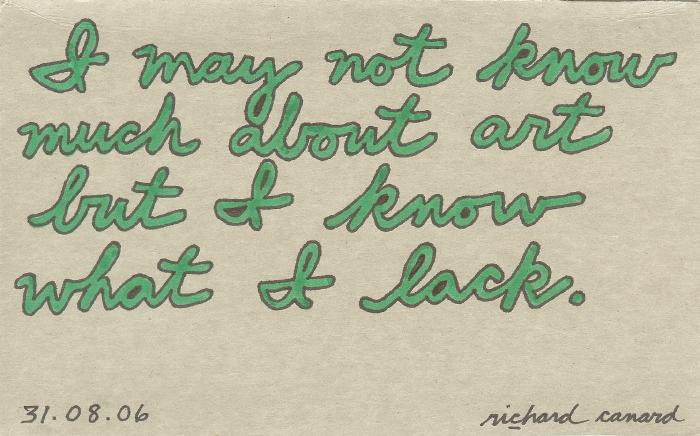 I may not know
much about art
but I know
what I lack.
31.08.06
richard canard